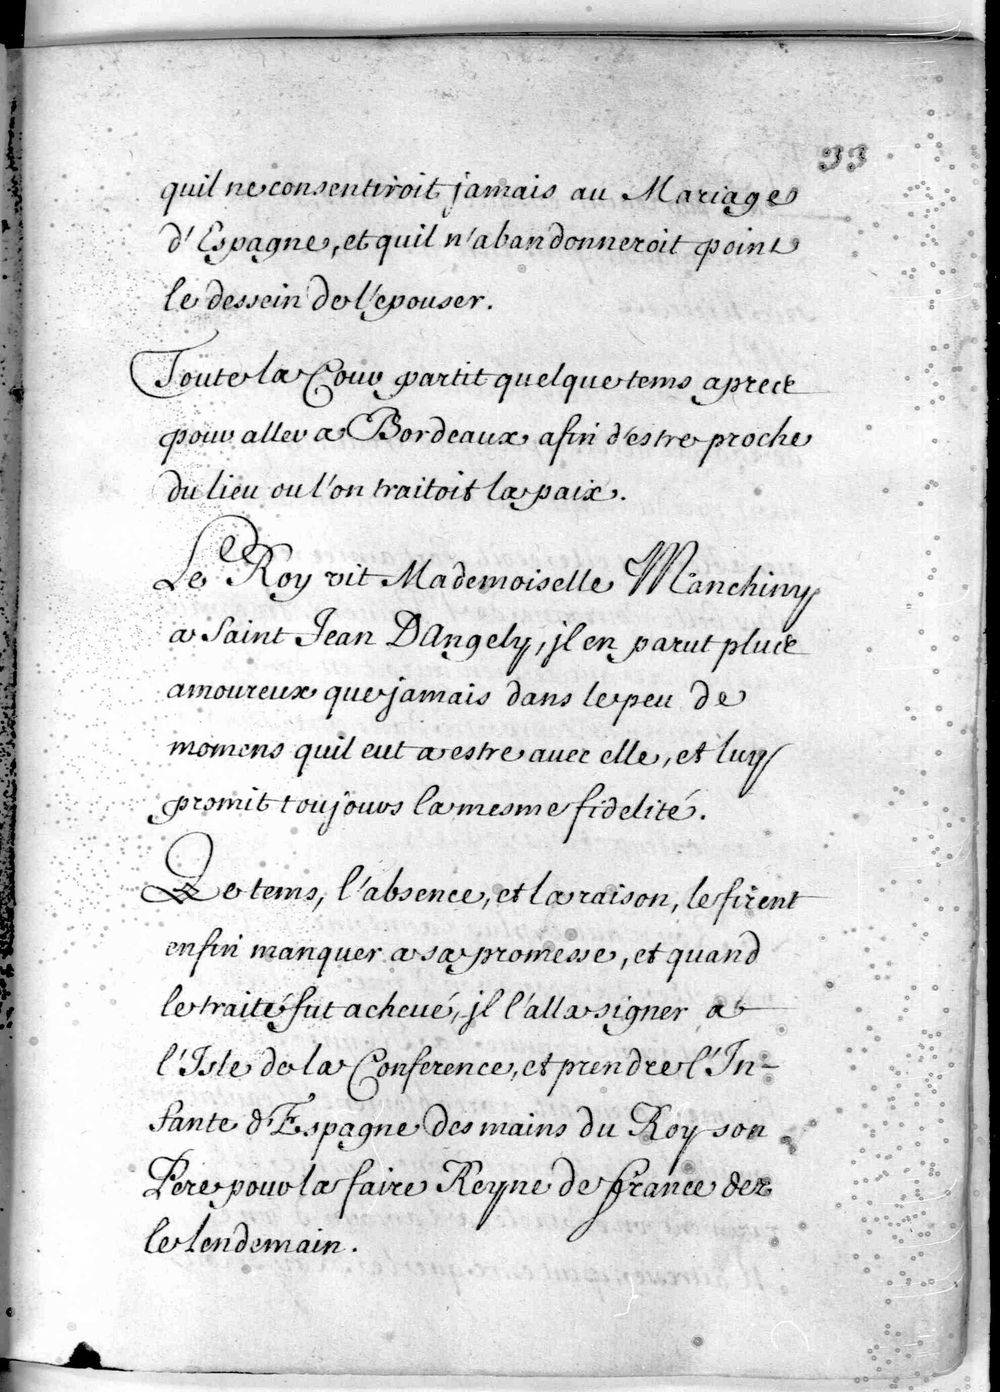 33
quil ne consentiroit jamais au Mariage
d'Espagne, et quil n'abandonneroit point
le dessein de l'epouser.
Toute la Cour partit quelque tems apres
pour aller a Bordeaux afin d'estre proche
du lieu ou l'on traitoit la paix.
Le Roy vit Mademoiselle Manchiny
a Saint Jean DAngely, jl en parut plus
amoureux que jamais dans le peu de
momens quil eut a estre avec elle, et luy
promit toujours la mesme fidelité.
Le tems, l'absence, et la raison, le firent
enfin manquer a sa promesse, et quand
le traité fut acheué, jl l'alla signer a
l'Isle de la Conference, et prendre l'In-
fante d'Espagne des mains du Roy son
Pere pour la faire Reyne de france dez
le lendemain.